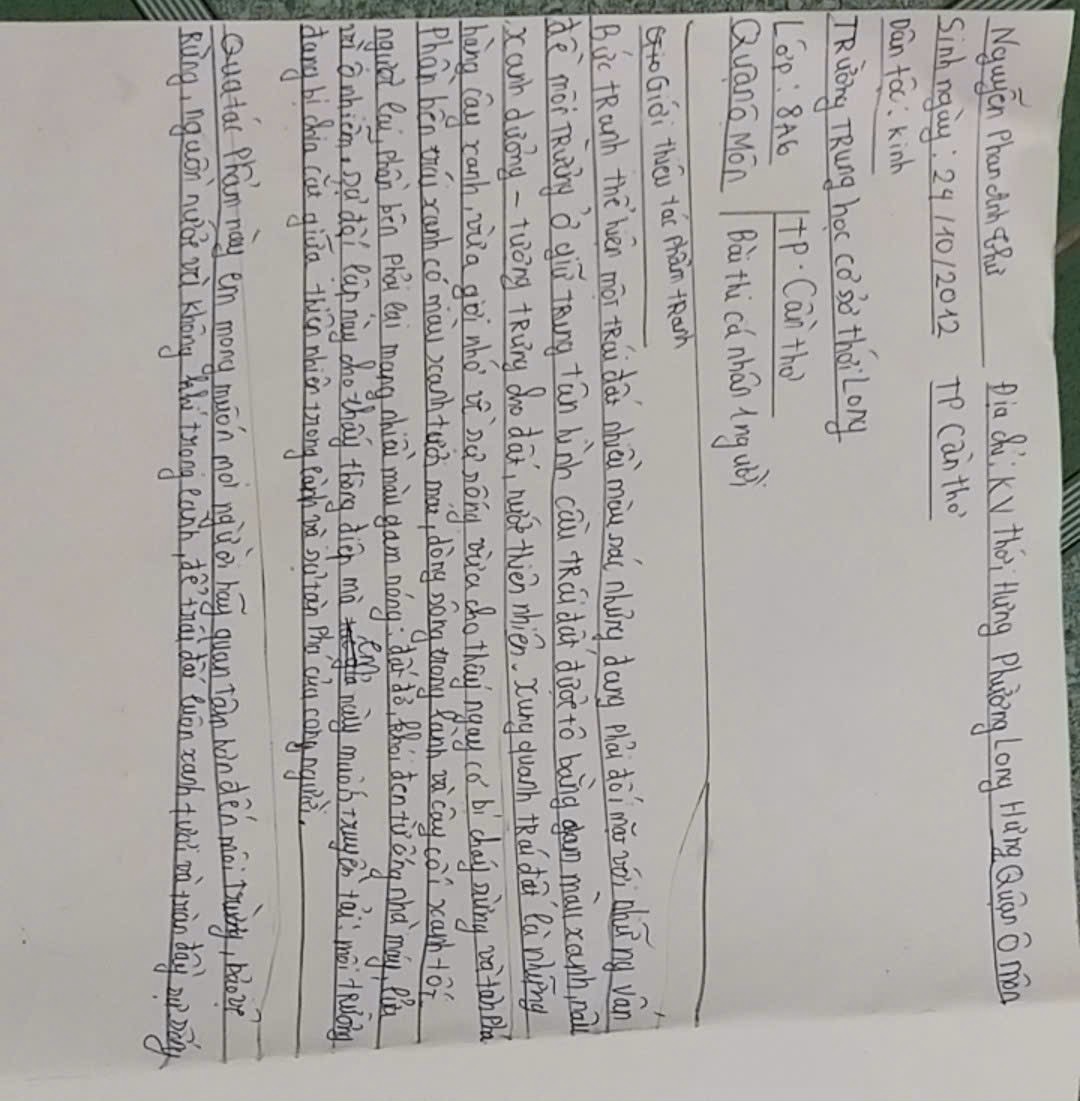 Nguyễn Phan Anh Thư Địa chỉ: KV Thới Hưng Phường Long Hưng Quận Ô Môn
Sinh ngày: 24/10/2012 TP Cần thơ
Dân tộc: kinh
TRường TRung học cơ sở thới Long
Lớp: 8A6 TP. Cần thơ
Quận Ô Môn Bài thi cá nhân 1 người
Giới thiệu tác phẩm tRanh
Bức tRanh thể hiện một tRái đất nhiều màu sắc nhưng đang phải đối mặt với những vấn
đề môi TRường ở giữ TRung tâm hình cầu tRái đất được tô bằng gam màu xanh, nâu
xanh dương - tượng tRưng cho đất, nước thiên nhiên. xung quanh tRái đất là những
hàng cây xanh, vừa gợi nhớ về sự sống vừa cho thấy nguy cơ bị cháy rừng và tàn phá
Phần bên trái xanh có màu xanh tươi mát, dòng sông trong lành và cây cối xanh tốt
ngược lại, phần bên phải lại mang nhiều màu gam nóng: đất đỏ, khói đen từ ống nhà máy, lửa
và ô nhiễm, sự đối lập này cho thấy thông điệp mà em này muốn truyền tải: môi tRường
đang bị chia cắt giữa thiên nhiên trong lành và sự tàn phá của con người.
Qua tác phẩm này em mong muốn mọi người hãy quan tâm hơn đến môi trường, bảo vệ
Rừng, nguồn nước và không khí trong lành, để trái đất luôn xanh tươi và tràn đầy sự sống